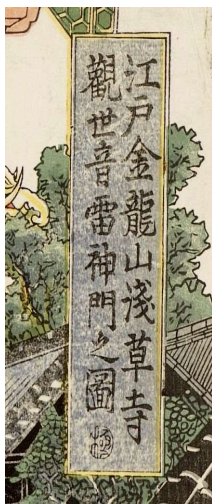 江戸金龍山淺草寺
觀世音雷神門之圖